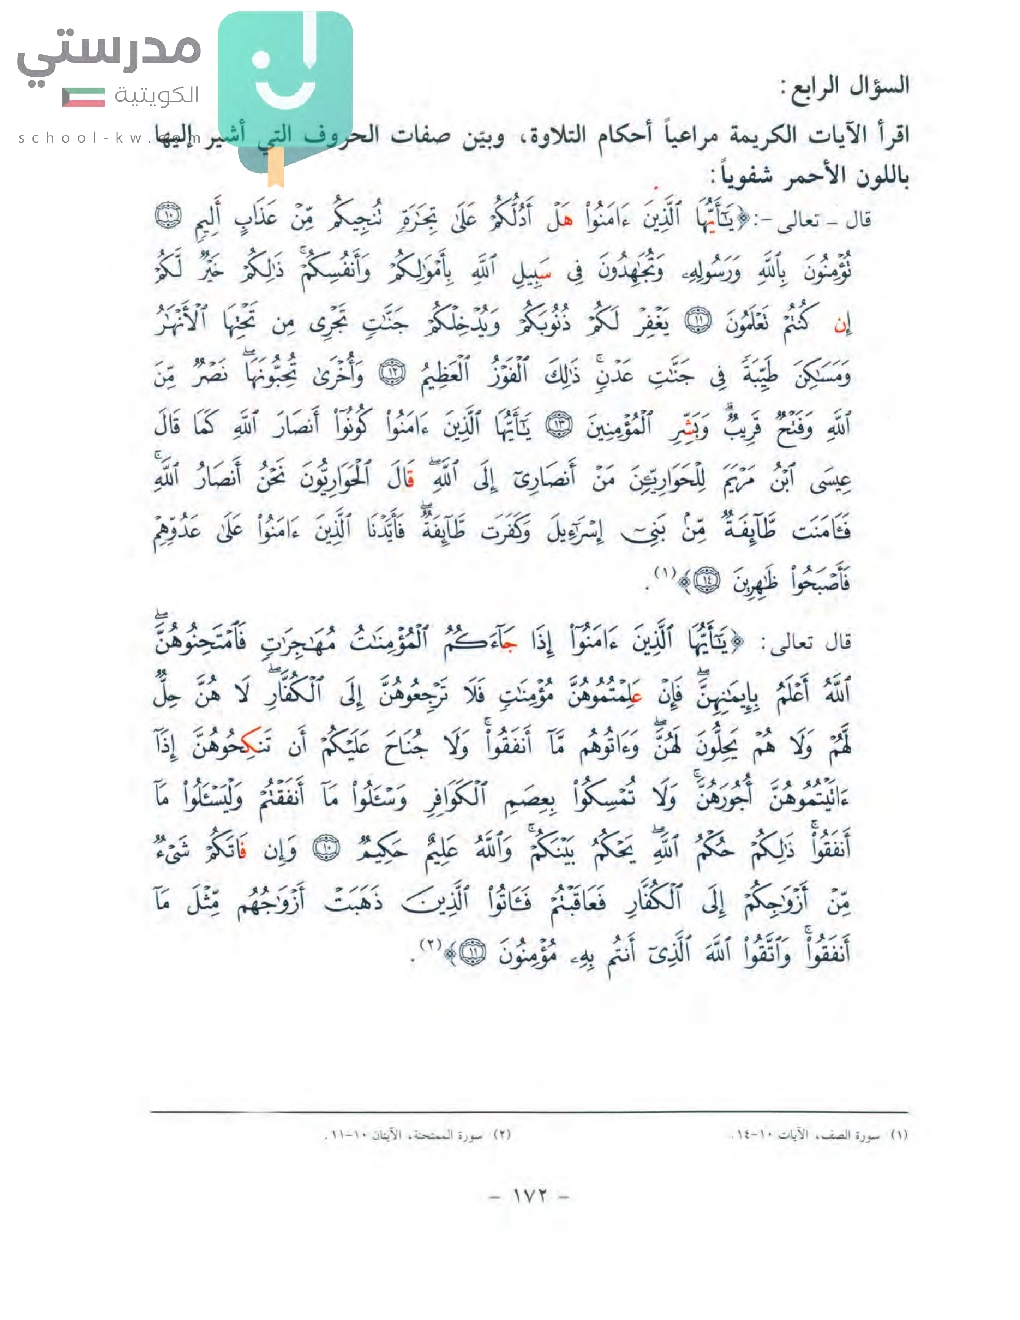 مدرستي
الكويتية
school-kw.com
السؤال الرابع:
اقرأ الآيات الكريمة مراعياً أحكام التلاوة، وبيّن صفات الحروف التي أشير إليها
باللون الأحمر شفوياً:
قال - تعالى -: ﴿يَـٰٓأَيُّهَا ٱلَّذِينَ ءَامَنُوا۟ هَلْ أَدُلُّكُمْ عَلَىٰ تِجَـٰرَةٍ تُنجِيكُم مِّنْ عَذَابٍ أَلِيمٍ ١٠
تُؤْمِنُونَ بِٱللَّهِ وَرَسُولِهِۦ وَتُجَـٰهِدُونَ فِى سَبِيلِ ٱللَّهِ بِأَمْوَٰلِكُمْ وَأَنفُسِكُمْ ۚ ذَٰلِكُمْ خَيْرٌ لَّكُمْ
إِن كُنتُمْ تَعْلَمُونَ ١١ يَغْفِرْ لَكُمْ ذُنُوبَكُمْ وَيُدْخِلْكُمْ جَنَّـٰتٍ تَجْرِى مِن تَحْتِهَا ٱلْأَنْهَـٰرُ
وَمَسَـٰكِنَ طَيِّبَةً فِى جَنَّـٰتِ عَدْنٍ ۚ ذَٰلِكَ ٱلْفَوْزُ ٱلْعَظِيمُ ١٢ وَأُخْرَىٰ تُحِبُّونَهَا ۖ نَصْرٌ مِّنَ
ٱللَّهِ وَفَتْحٌ قَرِيبٌ ۗ وَبَشِّرِ ٱلْمُؤْمِنِينَ ١٣ يَـٰٓأَيُّهَا ٱلَّذِينَ ءَامَنُوا۟ كُونُوٓا۟ أَنصَارَ ٱللَّهِ كَمَا قَالَ
عِيسَى ٱبْنُ مَرْيَمَ لِلْحَوَارِيِّـۧنَ مَنْ أَنصَارِىٓ إِلَى ٱللَّهِ ۖ قَالَ ٱلْحَوَارِيُّونَ نَحْنُ أَنصَارُ ٱللَّهِ ۖ
فَـَٔامَنَت طَّآئِفَةٌ مِّنۢ بَنِىٓ إِسْرَٰٓءِيلَ وَكَفَرَت طَّآئِفَةٌ ۖ فَأَيَّدْنَا ٱلَّذِينَ ءَامَنُوا۟ عَلَىٰ عَدُوِّهِمْ
فَأَصْبَحُوا۟ ظَـٰهِرِينَ ١٤﴾(١).
قال تعالى: ﴿يَـٰٓأَيُّهَا ٱلَّذِينَ ءَامَنُوٓا۟ إِذَا جَآءَكُمُ ٱلْمُؤْمِنَـٰتُ مُهَـٰجِرَٰتٍ فَٱمْتَحِنُوهُنَّ ۖ
ٱللَّهُ أَعْلَمُ بِإِيمَـٰنِهِنَّ ۖ فَإِنْ عَلِمْتُمُوهُنَّ مُؤْمِنَـٰتٍ فَلَا تَرْجِعُوهُنَّ إِلَى ٱلْكُفَّارِ ۖ لَا هُنَّ حِلٌّ
لَّهُمْ وَلَا هُمْ يَحِلُّونَ لَهُنَّ ۖ وَءَاتُوهُم مَّآ أَنفَقُوا۟ ۚ وَلَا جُنَاحَ عَلَيْكُمْ أَن تَنكِحُوهُنَّ إِذَآ
ءَاتَيْتُمُوهُنَّ أُجُورَهُنَّ ۚ وَلَا تُمْسِكُوا۟ بِعِصَمِ ٱلْكَوَافِرِ وَسْـَٔلُوا۟ مَآ أَنفَقْتُمْ وَلْيَسْـَٔلُوا۟ مَآ
أَنفَقُوا۟ ۚ ذَٰلِكُمْ حُكْمُ ٱللَّهِ ۖ يَحْكُمُ بَيْنَكُمْ ۚ وَٱللَّهُ عَلِيمٌ حَكِيمٌ ١٠ وَإِن فَاتَكُمْ شَىْءٌ
مِّنْ أَزْوَٰجِكُمْ إِلَى ٱلْكُفَّارِ فَعَاقَبْتُمْ فَـَٔاتُوا۟ ٱلَّذِينَ ذَهَبَتْ أَزْوَٰجُهُم مِّثْلَ مَآ
أَنفَقُوا۟ ۚ وَٱتَّقُوا۟ ٱللَّهَ ٱلَّذِىٓ أَنتُم بِهِۦ مُؤْمِنُونَ ١١﴾(٢).
(١) سورة الصف، الآيات ١٠-١٤. (٢) سورة الممتحنة، الآيتان ١٠-١١.
- ١٧٢ -